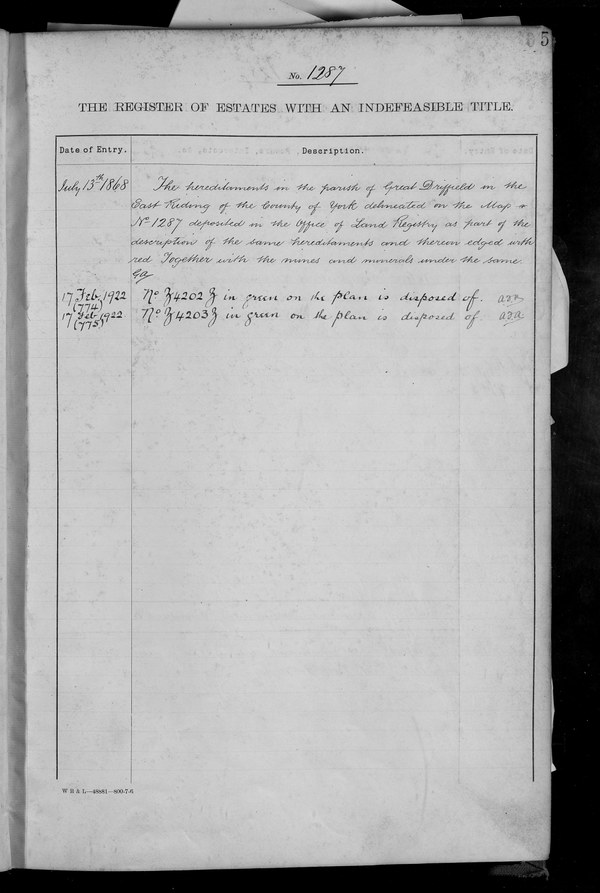 5
No. 1287
THE REGISTER OF ESTATES WITH AN INDEFEASIBLE TITLE.
Date of Entry. Description.
July 13th 1868 The hereditaments in the parish of Great Driffield in the
East Riding of the County of York delineated on the Map
No 1287 deposited in the Office of Land Registry as part of the
description of the same hereditaments and therein edged with
red Together with the mines and minerals under the same.
17 Feb. 1922 No 4202 in green on the plan is disposed of.
(774)
17 Feb 1922 No 4203 in green on the plan is disposed of.
(775)
W B & L—48881—800-7-6